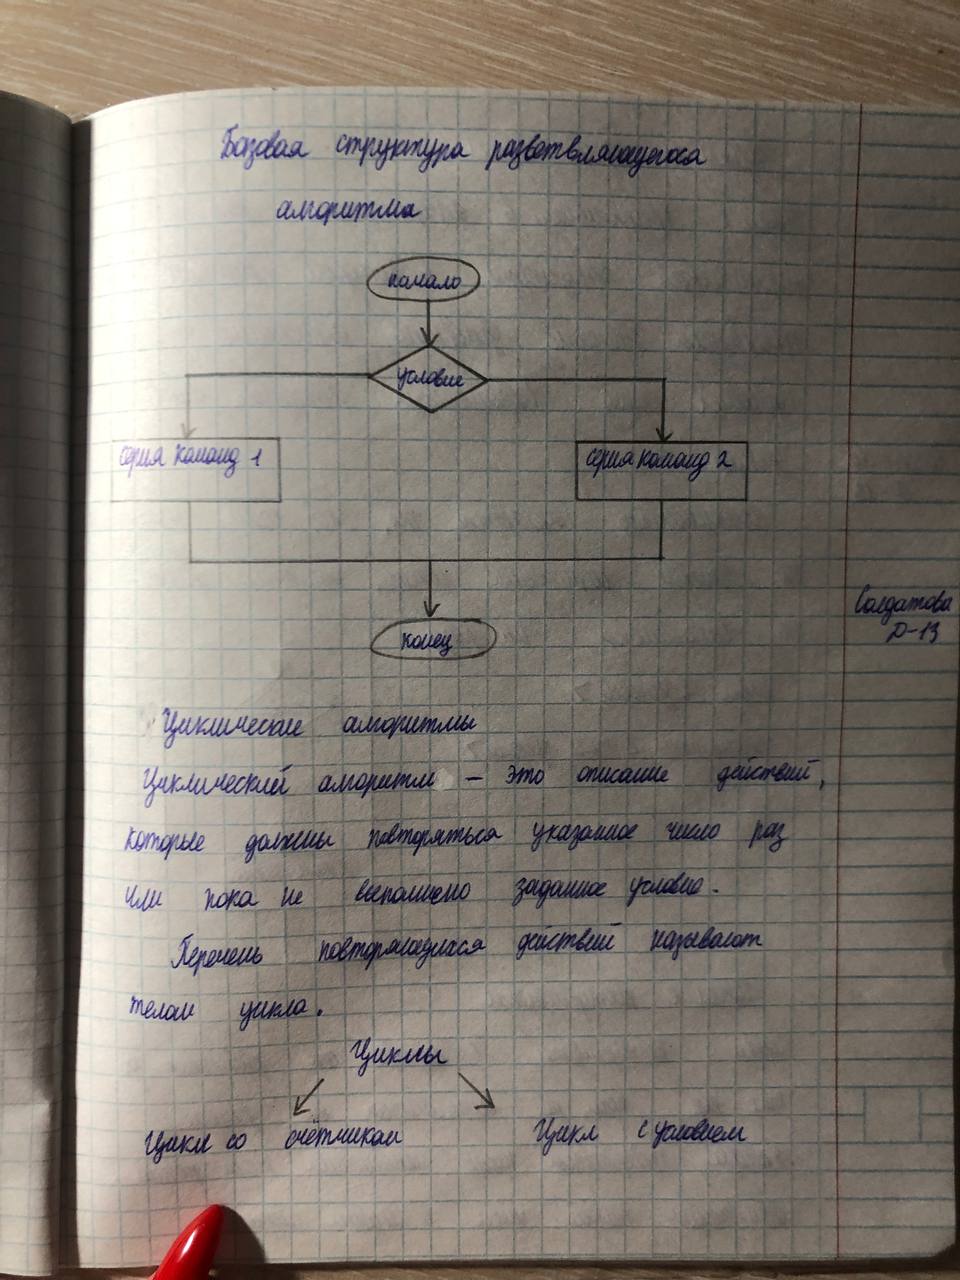 Базовая структура разветвляющегося
алгоритма
начало
условие
серия команд 1
серия команд 2
конец
Солдатова
Д-13
Циклические алгоритмы
Циклический алгоритм – это описание действий,
которые должны повторяться указанное число раз
или пока не выполнено заданное условие.
Перечень повторяющихся действий называют
телом цикла.
Циклы
Цикл со счётчиком
Цикл с условием